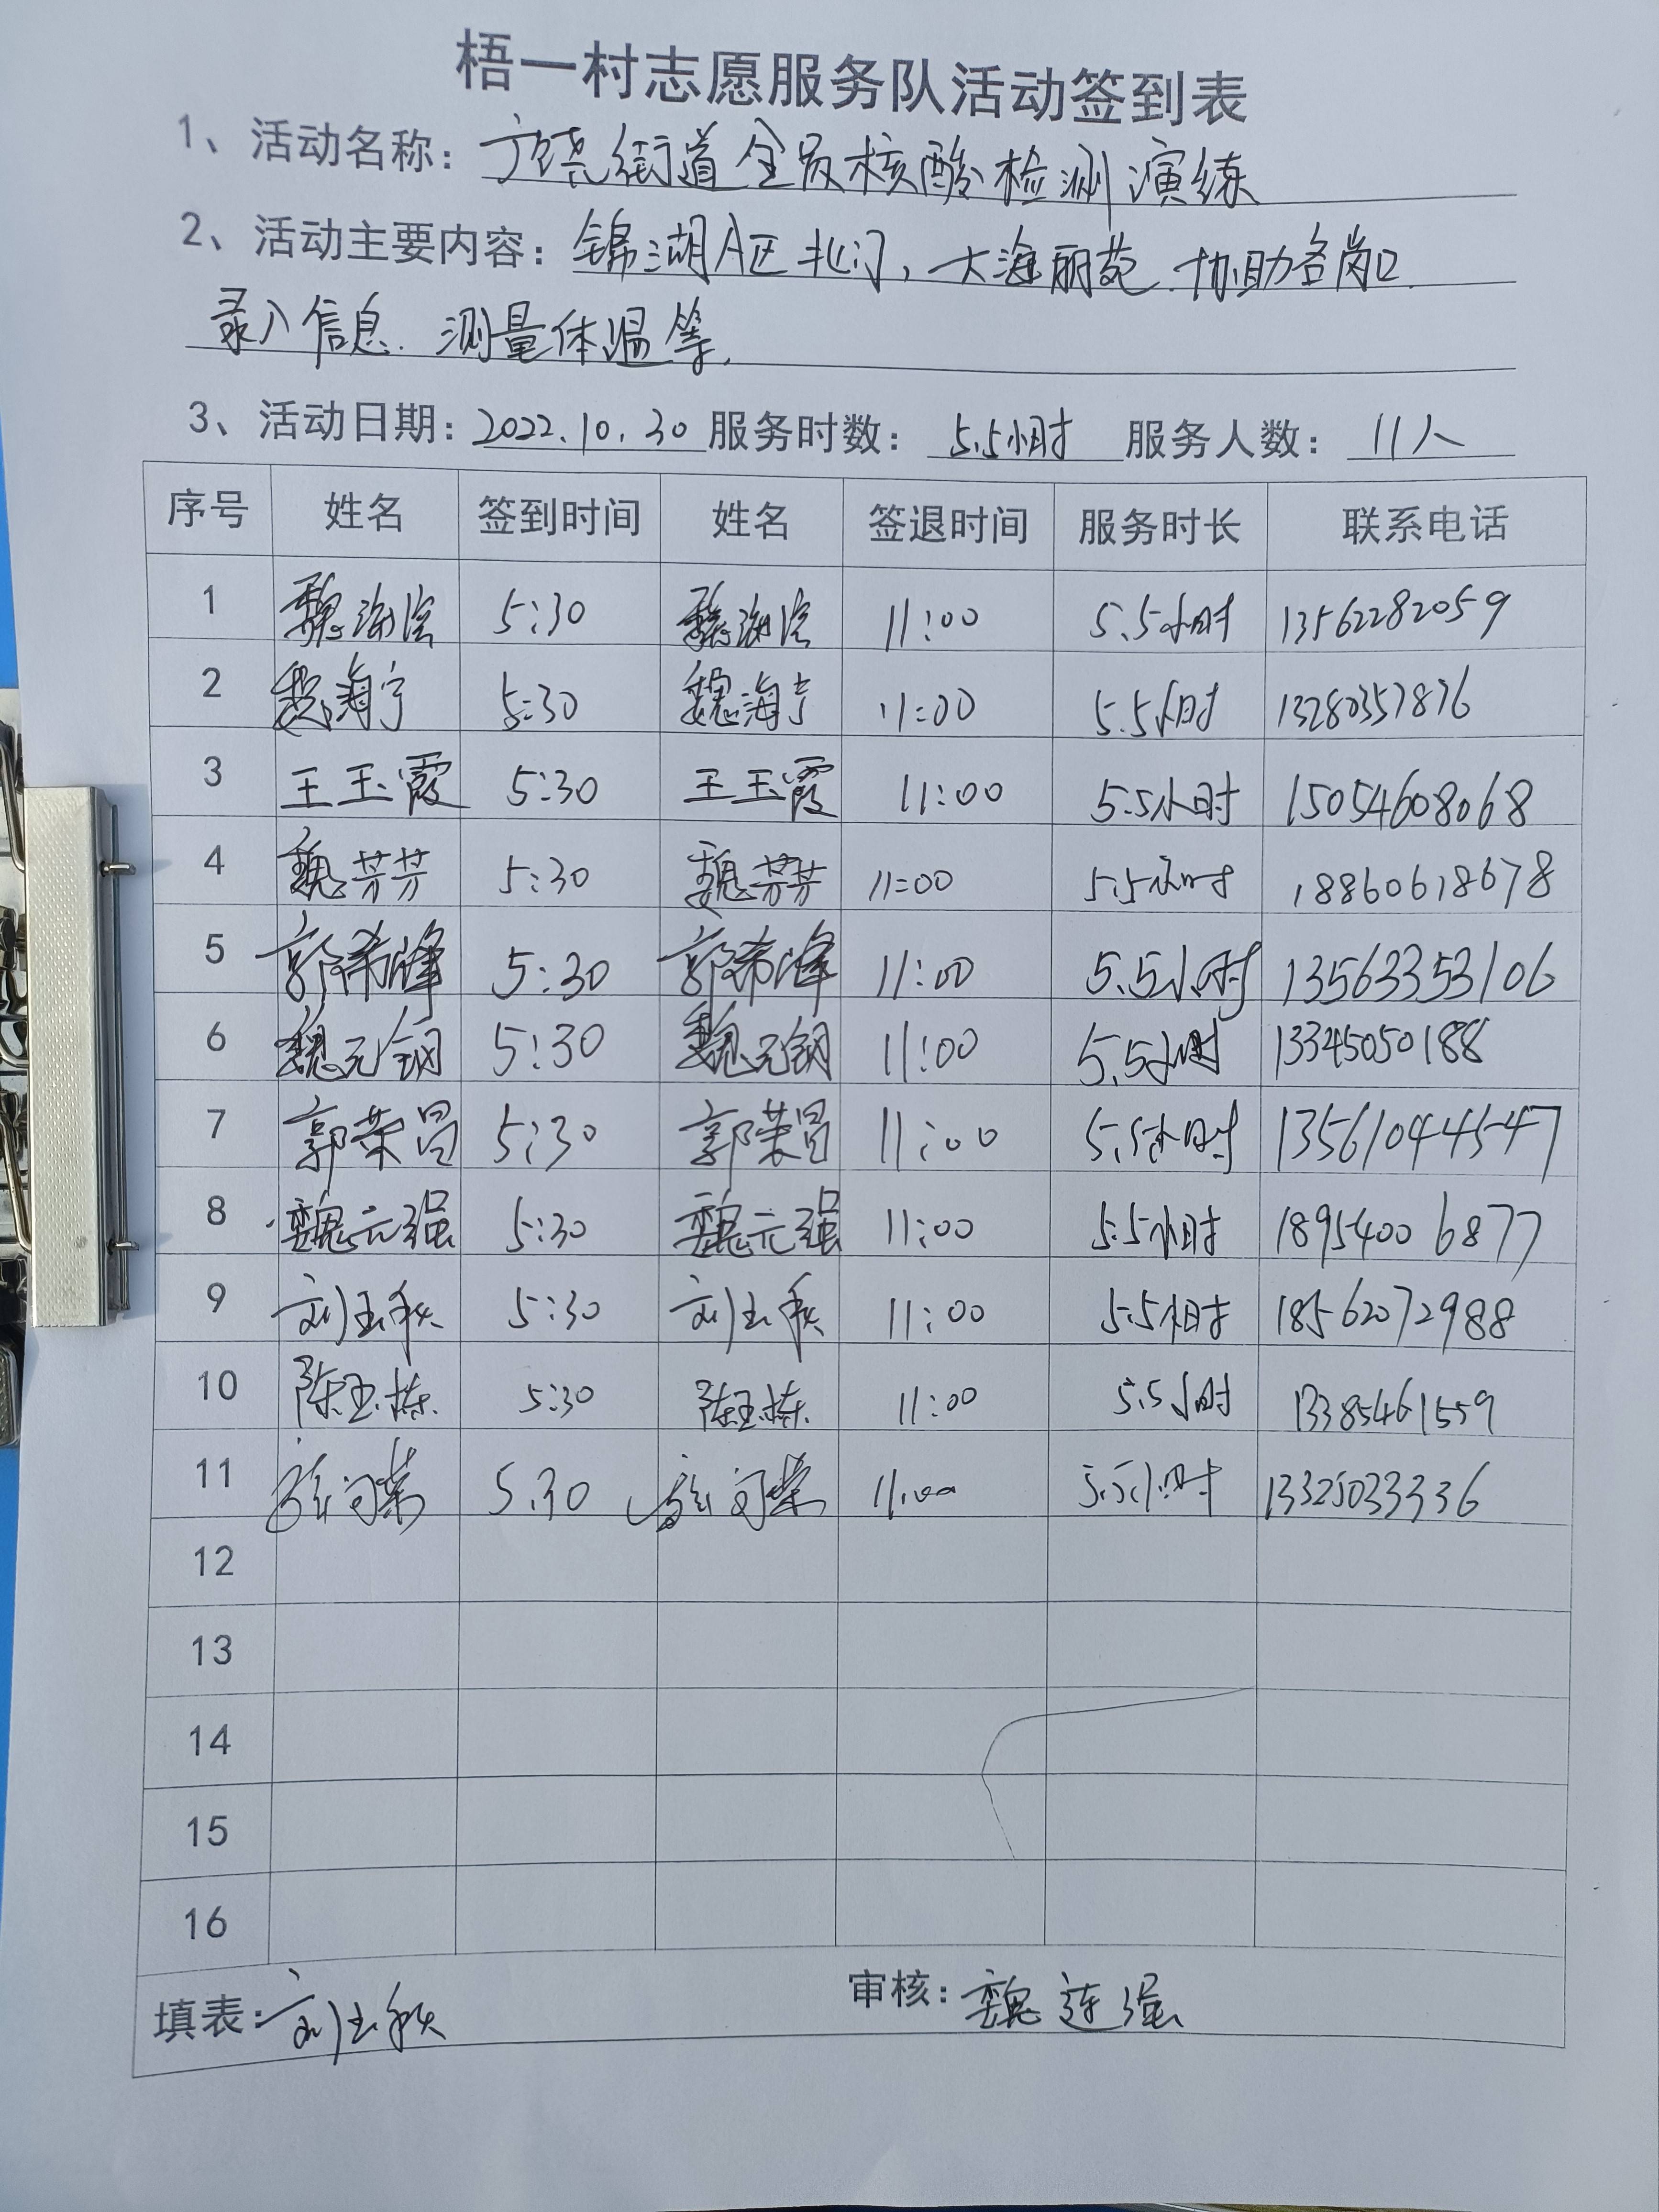 梧一村志愿服务队活动签到表
1、活动名称：广饶街道全员核酸检测演练
2、活动主要内容：锦湖A区北门，大海丽苑.协助各岗口
录入信息.测量体温等.
3、活动日期：2022.10.30 服务时数：5.5小时 服务人数：11人
序号 姓名 签到时间 姓名 签退时间 服务时长 联系电话
1 魏海滨 5:30 魏海滨 11:00 5.5小时 13562282059
2 魏海宁 5:30 魏海宁 11:00 5.5小时 13280357876
3 王玉霞 5:30 王玉霞 11:00 5.5小时 15054608068
4 魏芳芳 5:30 魏芳芳 11:00 5.5小时 18860618678
5 郭希峰 5:30 郭希峰 11:00 5.5小时 13563353106
6 魏元钢 5:30 魏元钢 11:00 5.5小时 13345050188
7 郭荣昌 5:30 郭荣昌 11:00 5.5小时 13561044547
8 魏元强 5:30 魏元强 11:00 5.5小时 18954006877
9 刘玉秋 5:30 刘玉秋 11:00 5.5小时 18562072988
10 陈玉栋 5:30 陈玉栋 11:00 5.5小时 13385461559
11 5.30 11:00 5.5小时 13325033336
12
13
14
15
16
填表：刘玉秋 审核：魏连强